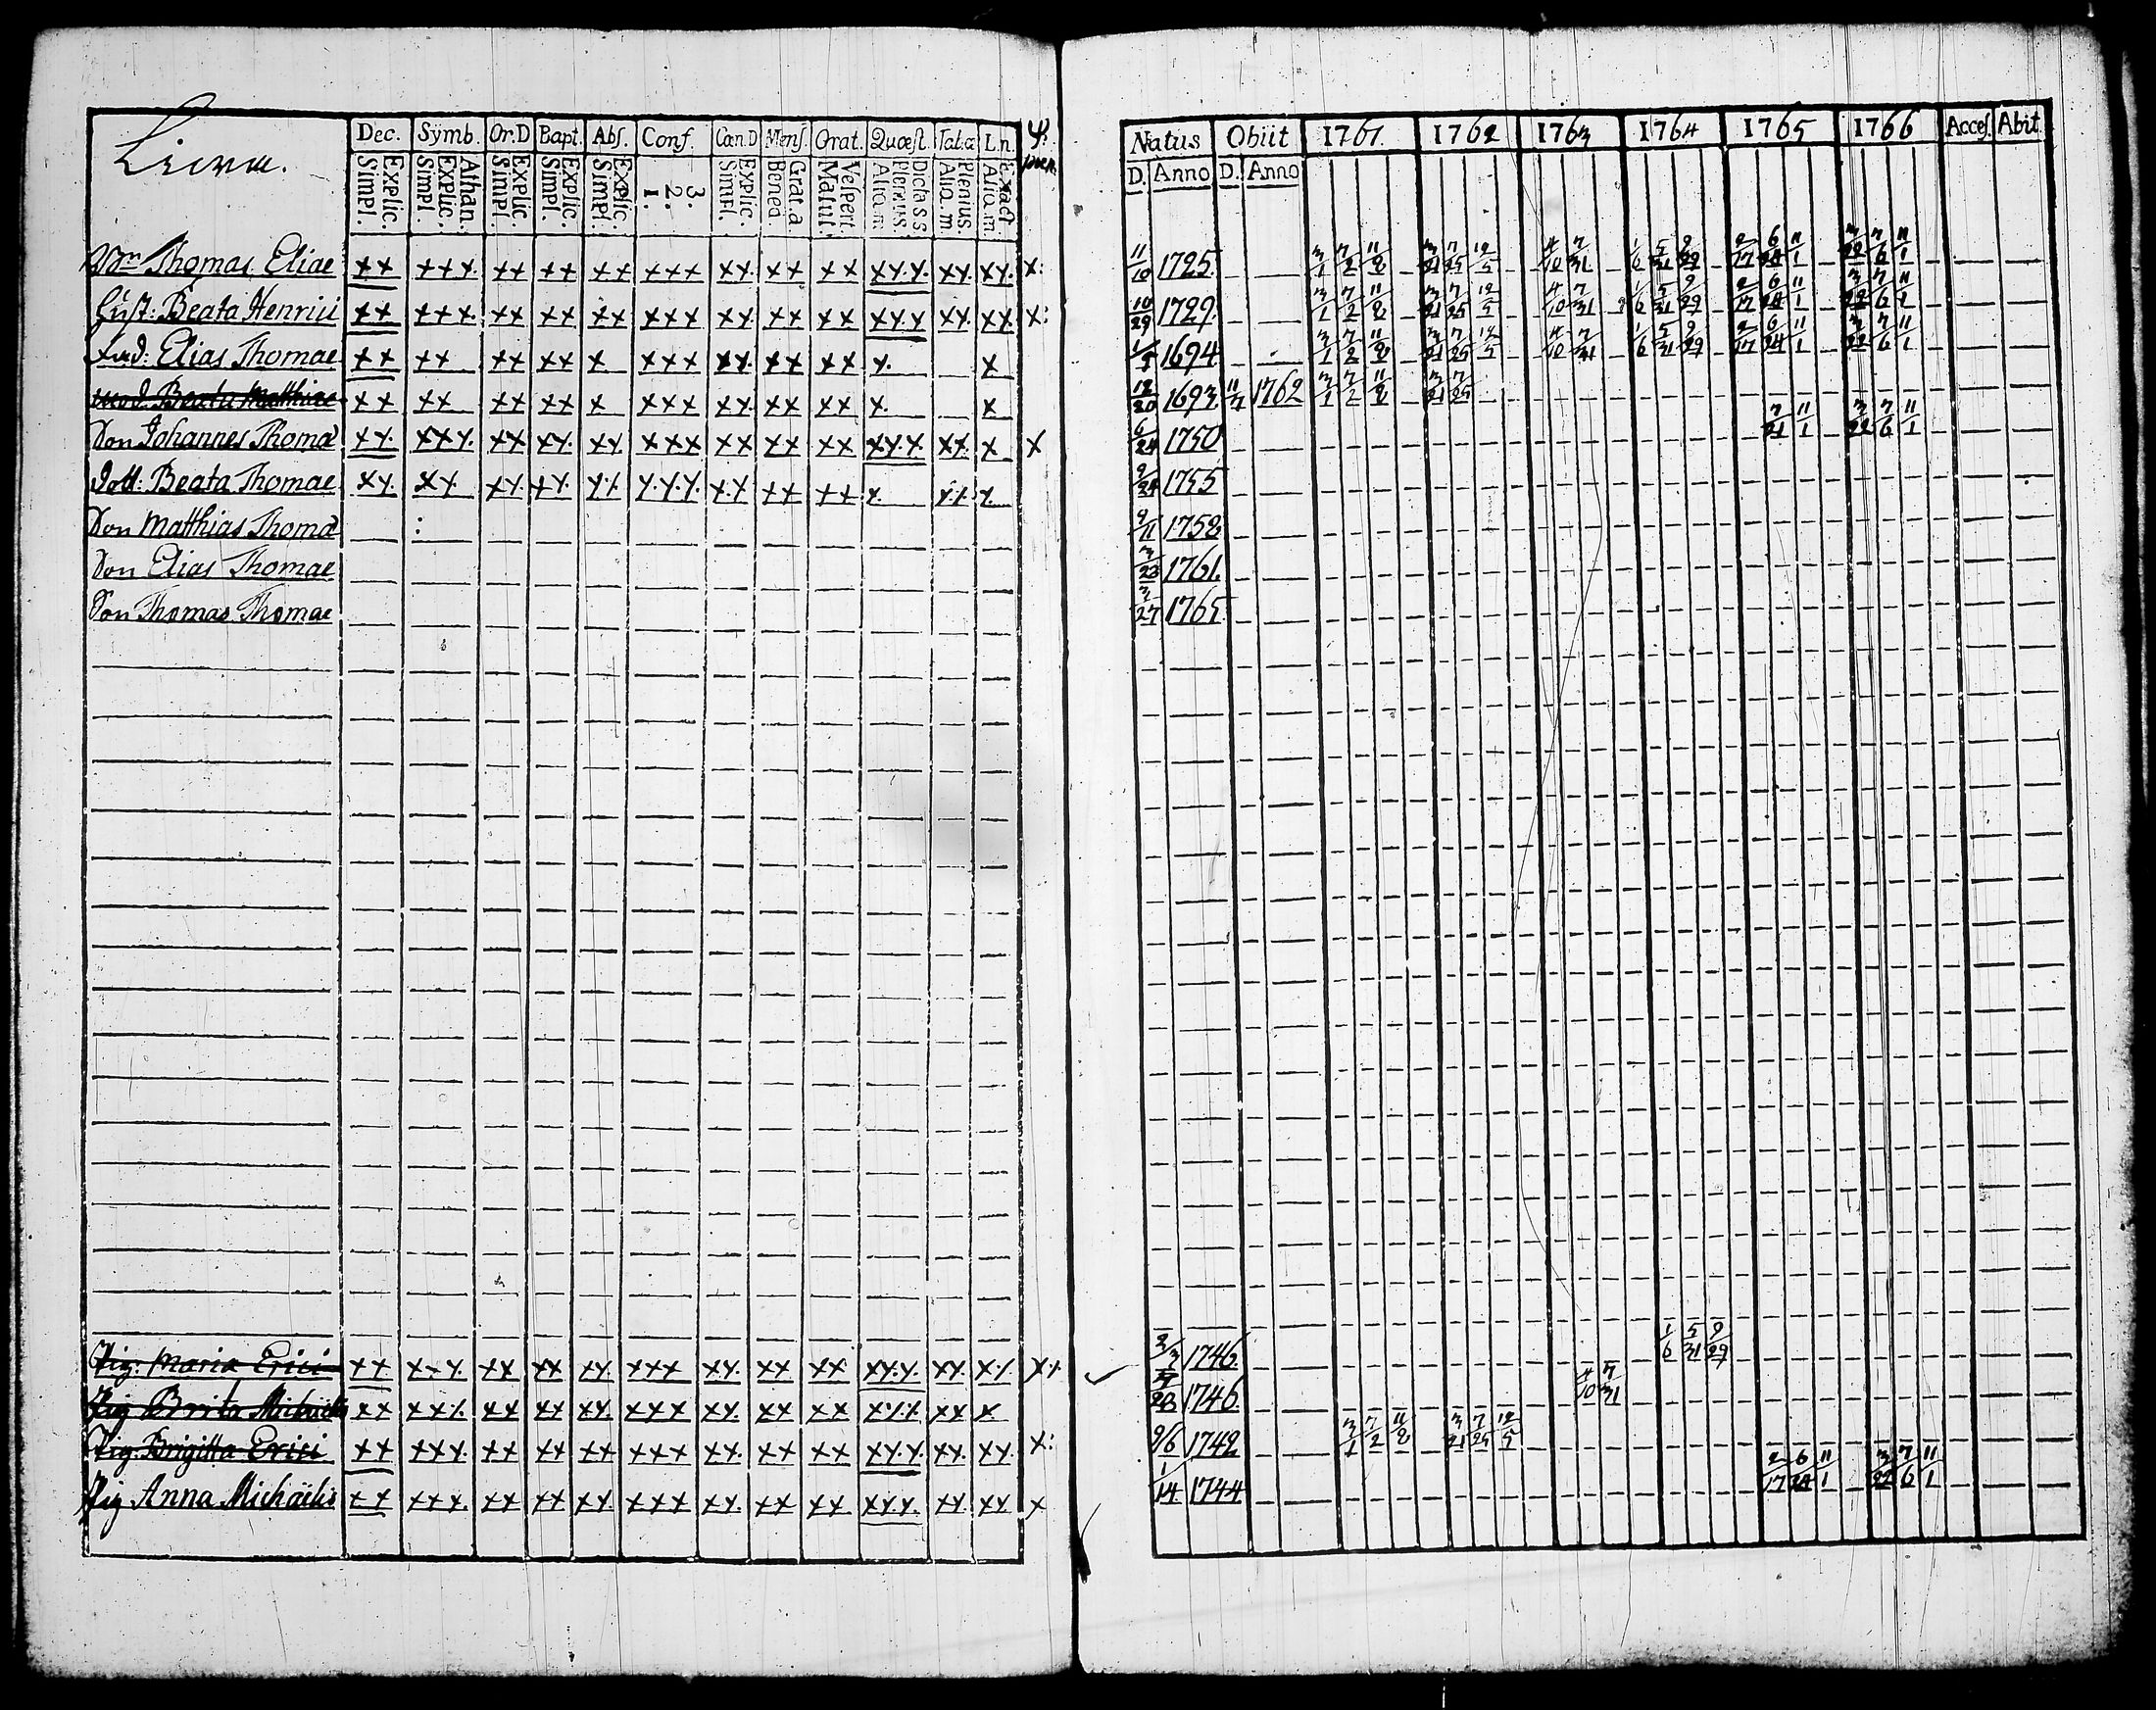 Dec. Symb. Or.D Bapt. Abs. Conf. Cœn.D Mens. Orat. Quæst. Tab.œ L.n.
Explic. Simpl. Athan. Explic. Simpl. Explic. Simpl. Explic. Simpl. Explic. Simpl. 3. 2. 1. Explic. Simpl. Grat.a Bened. Vespert. Matut. Dicta s s Plenius. Aliq. m. Plenius. Aliq. m. Exact Aliq. m.
Natus Obiit 1761. 1762 1763 1764 1765 1766 Acces. Abit.
D. Anno D. Anno
Thomas Eliae ×× ××× ×× ×× ×× ××× ×× ×× ×× ××× ×× ×× ×: 11/10 1725 3/1 7/2 11/8 3/21 7/25 12/5 4/10 7/31 1/6 5/31 9/29 2/17 6/24 11/1 3/22 7/6 11/1
Hust: Beata Henrici ×× ××× ×× ×× ×× ××× ×× ×× ×× ××× ×× ×× ×: 10/29 1729 3/1 7/2 11/8 3/21 7/25 12/5 4/10 7/31 1/6 5/31 9/29 2/17 6/24 11/1 3/22 7/6 11/1
Elias Thomae ×× ×× ×× ×× × ××× ×× ×× ×× × × 1694 3/1 7/2 11/8 3/21 7/25 12/5 4/10 7/31 1/6 5/31 9/29 2/17 6/24 11/1 3/22 7/6 11/1
Beata Matthiae ×× ×× ×× ×× × ××× ×× ×× ×× × × 12/20 1693 1762 3/1 7/2 11/8 3/21 7/25
Son Johannes Thomæ ×× ××× ×× ×× ×× ××× ×× ×× ×× ××× ×× × × 6/24 1750 7/21 11/1 3/22 7/6 11/1
Dott: Beata Thomae ×× ×× ×× ×× ×× ××× ×× ×× ×× × ×× × 9/24 1755
Son Matthias Thomæ 9/11 1758
Son Elias Thomae 3/23 1761.
Son Thomas Thomae 3/27 1765.
Pig: Maria Erici ×× ××× ×× ×× ×× ××× ×× ×× ×× ××× ×× ×× ×× 1746. 1/6 5/31 9/29
Pig Brita Michaelis ×× ××× ×× ×× ×× ××× ×× ×× ×× ××× ×× × 1746. 4/10 7/31
Pig. Brigitta Erici ×× ××× ×× ×× ×× ××× ×× ×× ×× ××× ×× ×× ×: 9/6 1742 3/1 7/2 11/8 3/21 7/25 12/5
Pig Anna Michaëlis ×× ××× ×× ×× ×× ××× ×× ×× ×× ××× ×× ×× × 1/14 1744 2/17 6/24 11/1 3/22 7/6 11/1